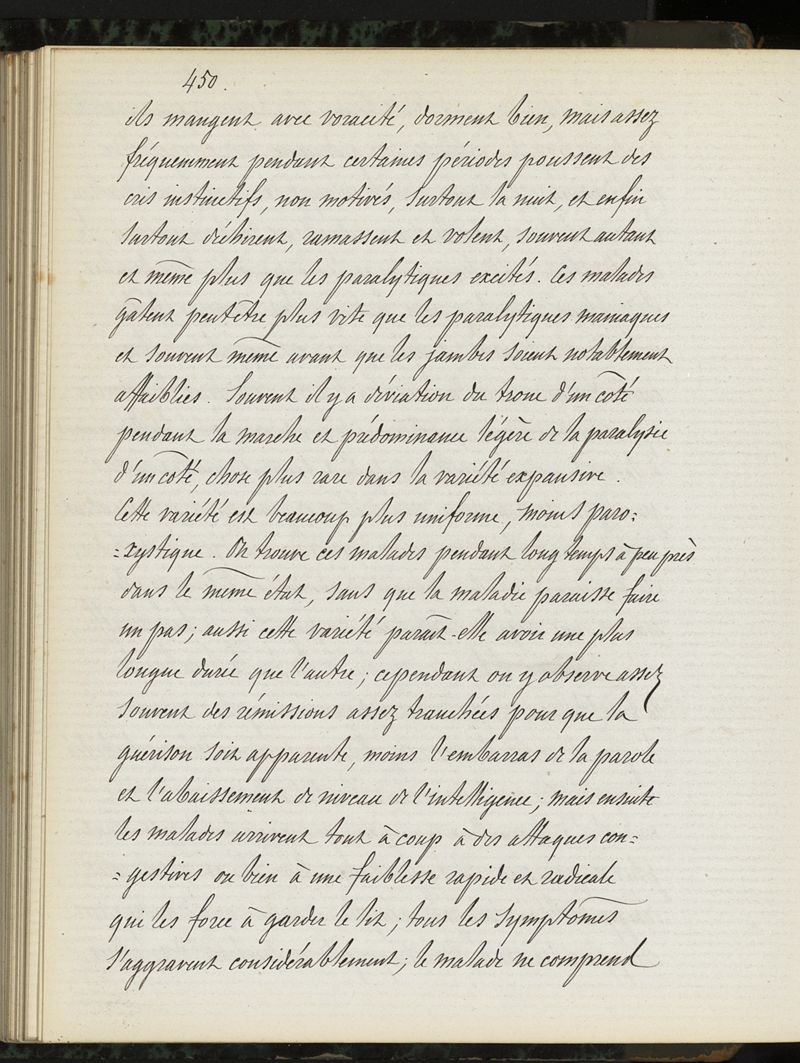 450.
ils mangent avec voracité, dorment bien, mais assez
fréquemment pendant certaines périodes poussent des
cris instinctifs, non motivés, surtout la nuit, et enfin
surtout déchirent, ramassent et volent, souvent autant
et même plus que les paralytiques excités. Ces malades
gâtent peut être plus vite que les paralytiques maniaques
et souvent même avant que les jambes soient notablement
affaiblies. Souvent il y a déviation du tronc d'un côté
pendant la marche et prédominance légère de la paralysie
d'un côté, chose plus rare dans la variété expansive.
Cette variété est beaucoup plus uniforme, moins paro=
=xystique. On trouve ces malades pendant long temps à peu près
dans le même état, sans que la maladie paraisse faire
un pas; aussi cette variété paraît-elle avoir une plus
longue durée que l'autre; cependant on y observe assez
souvent des rémissions assez tranchées pour que la
guérison soit apparente, moins l'embarras de la parole
et l'abaissement de niveau de l'intelligence; mais ensuite
les malades arrivent tout à coup à des attaques con=
=gestives ou bien à une faiblesse rapide et radicale
qui les force à garder le lit; tous les symptômes
s'aggravent considérablement; le malade ne comprend